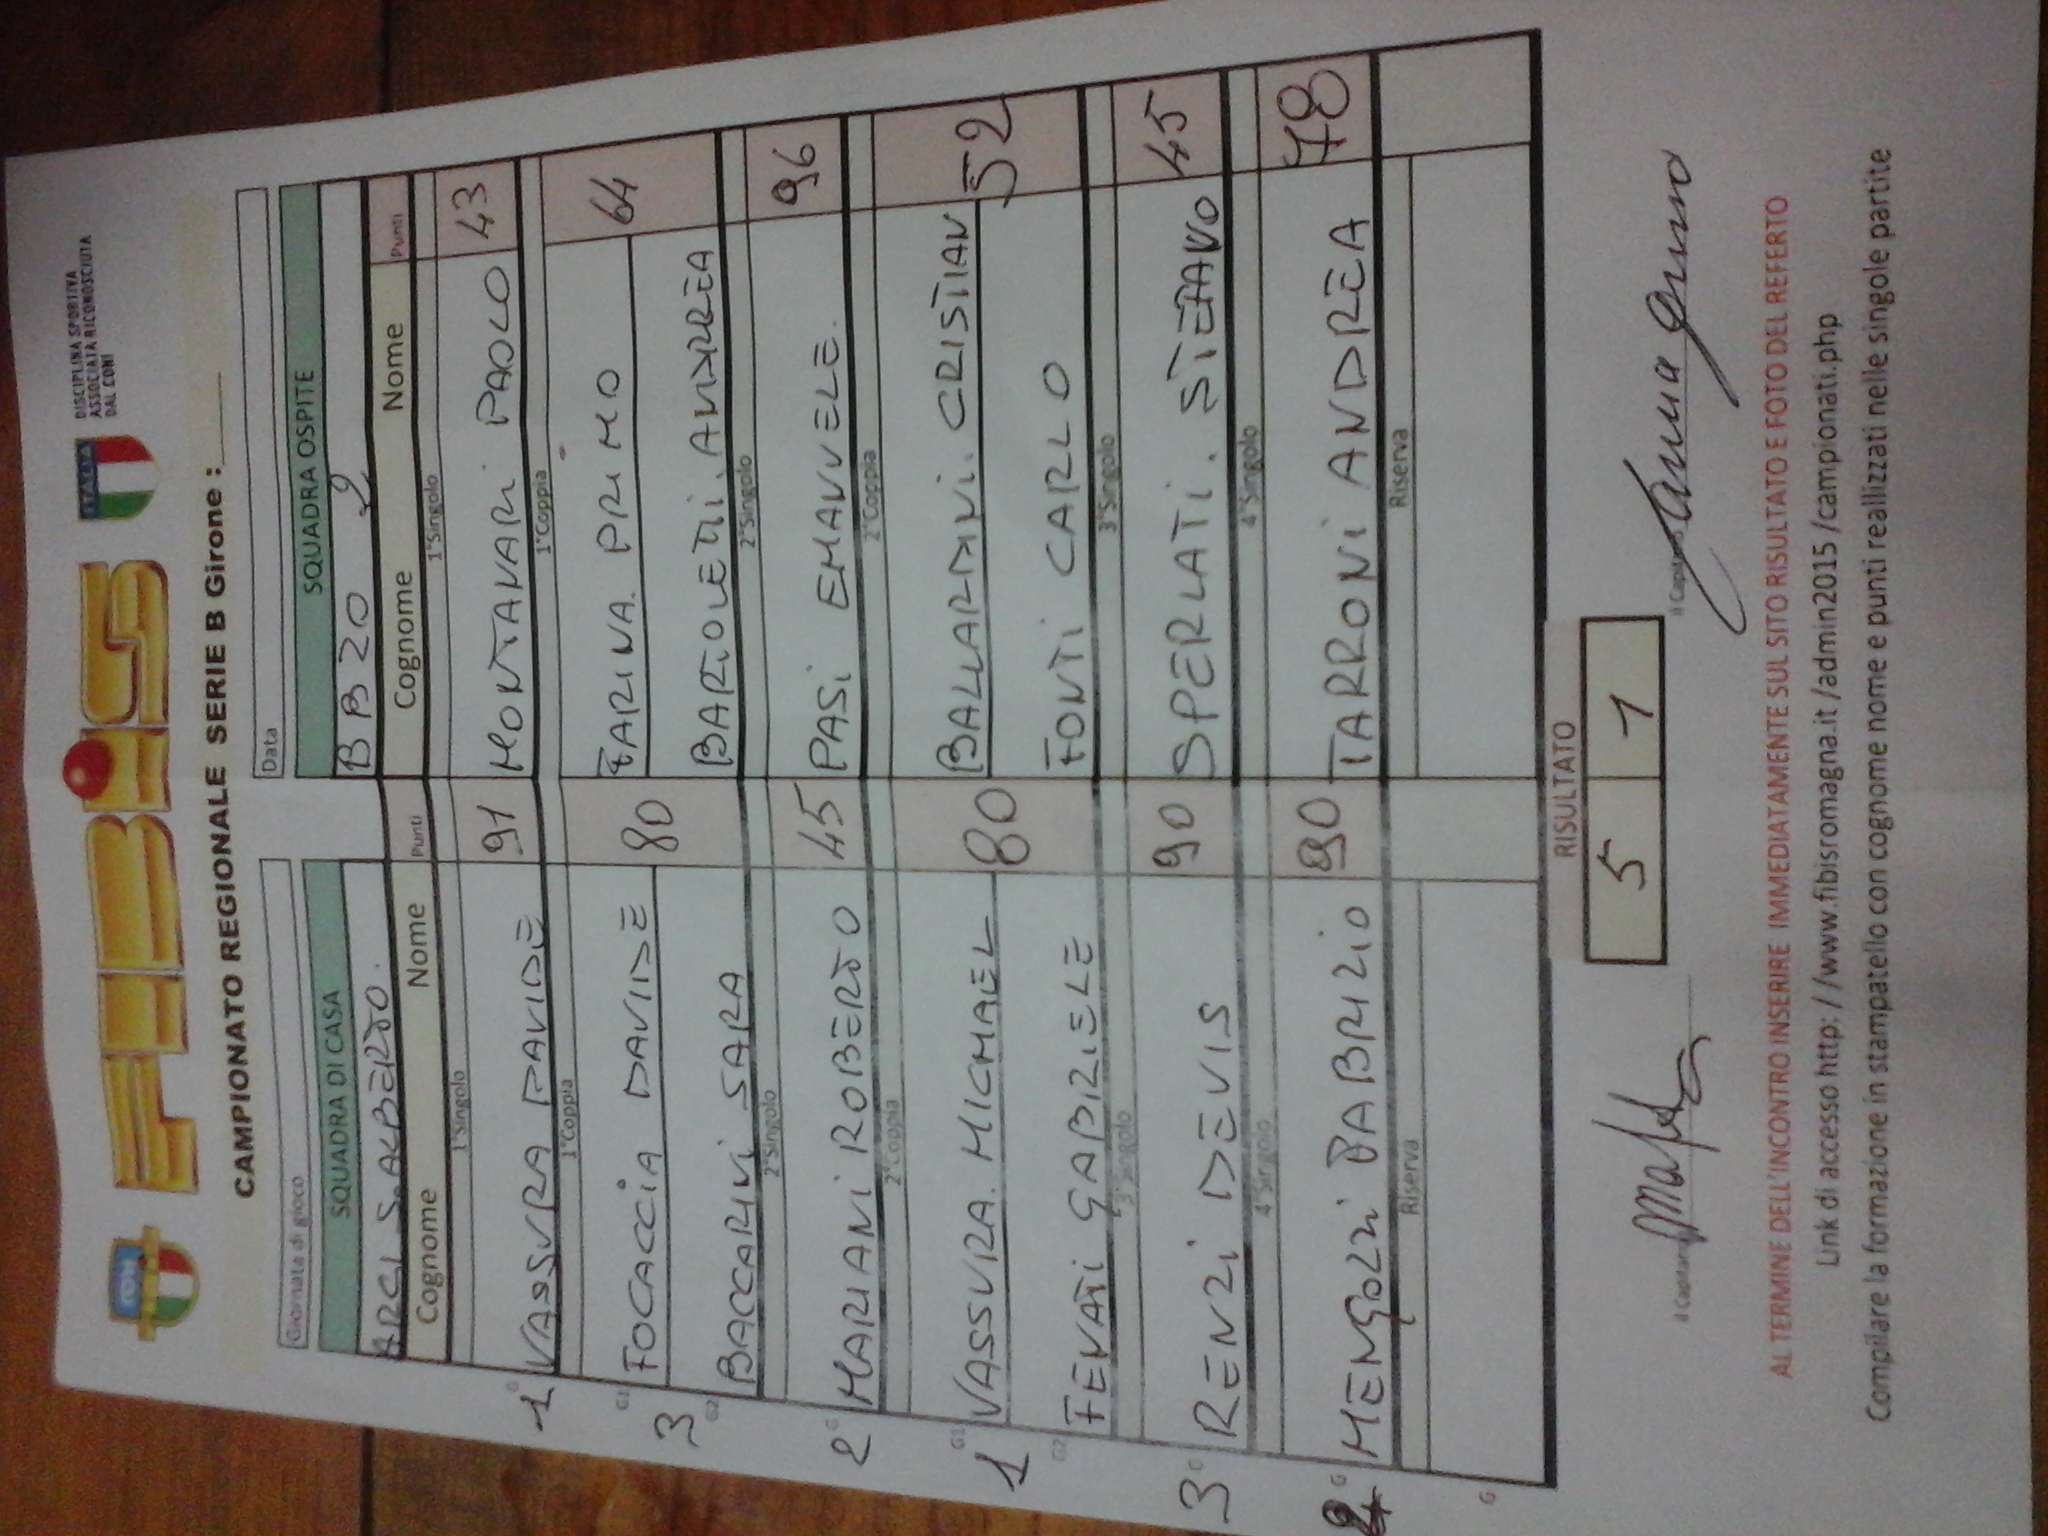 CONI
FIBiS
ITALIA
DISCIPLINA SPORTIVA
ASSOCIATA RICONOSCIUTA
DAL CONI
CAMPIONATO REGIONALE SERIE B Girone :
Giornata di gioco
Data
SQUADRA DI CASA SQUADRA OSPITE
ARCI S. ALBERTO. BB 20 2
Cognome Nome Punti Cognome Nome Punti
1°Singolo 1°Singolo
1 G VASSURA DAVIDE 91 MONTANARI PAOLO 43
1°Coppia 1°Coppia
3 G1 FOCACCIA DAVIDE 80 FARINA PRIMO 64
G2 BACCARINI SARA BARTOLETTI. ANDREA
2°Singolo 2°Singolo
2 G MARIANI ROBERTO 45 PASI EMANUELE. 96
2°Coppia 2°Coppia
1 G1 VASSURA MICHAEL 80 BALLARDINI. CRISTIAN 52
G2 FENATI GABRIELE FONTI CARLO
3°Singolo 3°Singolo
3 G RENZI DEVIS 90 SPERLATI. STEFANO 45
4°Singolo 4°Singolo
2 G MENGOZZI FABRIZIO 90 TARRONI ANDREA 78
Riserva Riserva
G
RISULTATO
5 1
il Capitano il Capitano
AL TERMINE DELL'INCONTRO INSERIRE IMMEDIATAMENTE SUL SITO RISULTATO E FOTO DEL REFERTO
Link di accesso http://www.fibisromagna.it/admin2015/campionati.php
Compilare la formazione in stampatello con cognome nome e punti reallizzati nelle singole partite